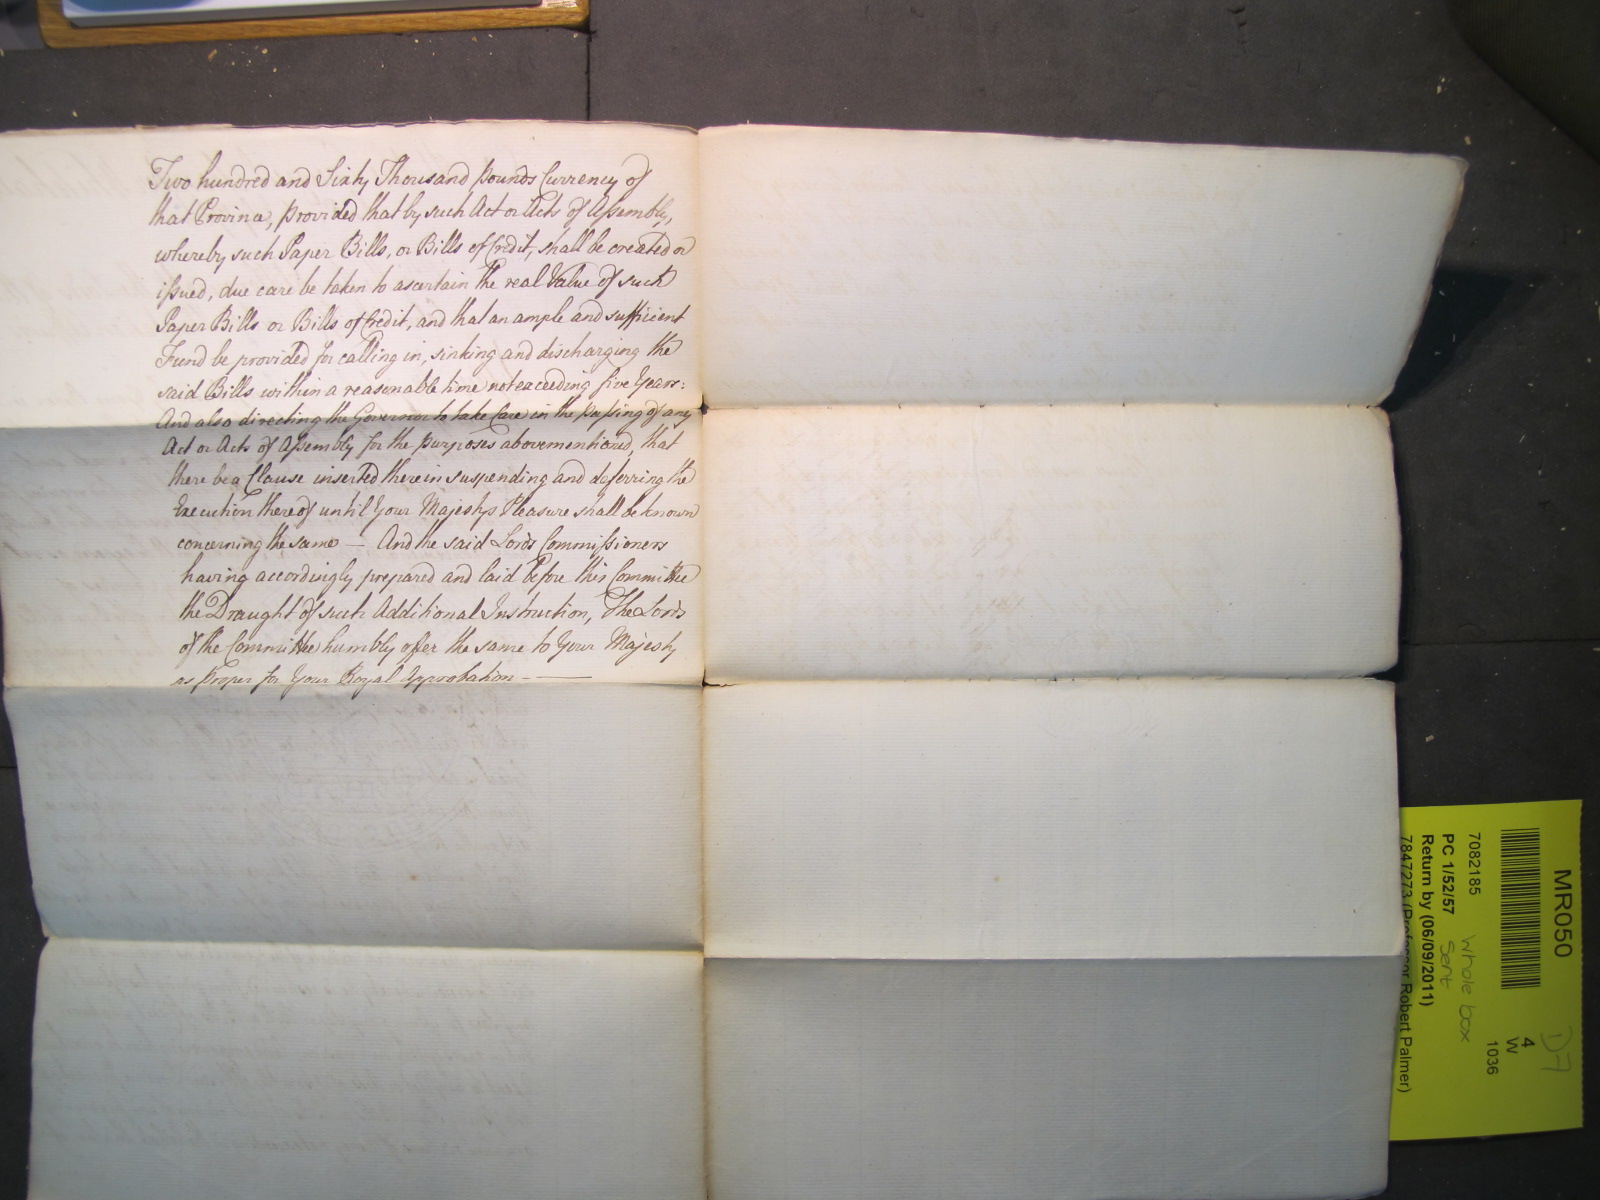 Two hundred and Sixty Thousand pounds Currency of
that Province, provided that by such Act or Acts of Assembly,
whereby such Paper Bills, or Bills of Credit, shall be created or
issued, due care be taken to ascertain the real Value of such
Paper Bills or Bills of Credit, and that an ample and sufficient
Fund be provided for calling in, sinking and discharging the
said Bills within a reasonable time not exceeding five Years:
And also directing the Governor to take Care in the passing of any
Act or Acts of Assembly for the purposes abovementioned, that
there be a Clause inserted therein suspending and deferring the
Execution thereof until Your Majestys Pleasure shall be known
concerning the same — And the said Lords Commissioners
having accordingly prepared and laid before this Committee
the Draught of such Additional Instruction, The Lords
of the Committee humbly offer the same to Your Majesty
as proper for Your Royal Approbation - —
MR050
7082185
PC 1/52/57
Return by (06/09/2011)
7847273 (Professor Robert Palmer)
whole box
sent
D7
4
W
1036